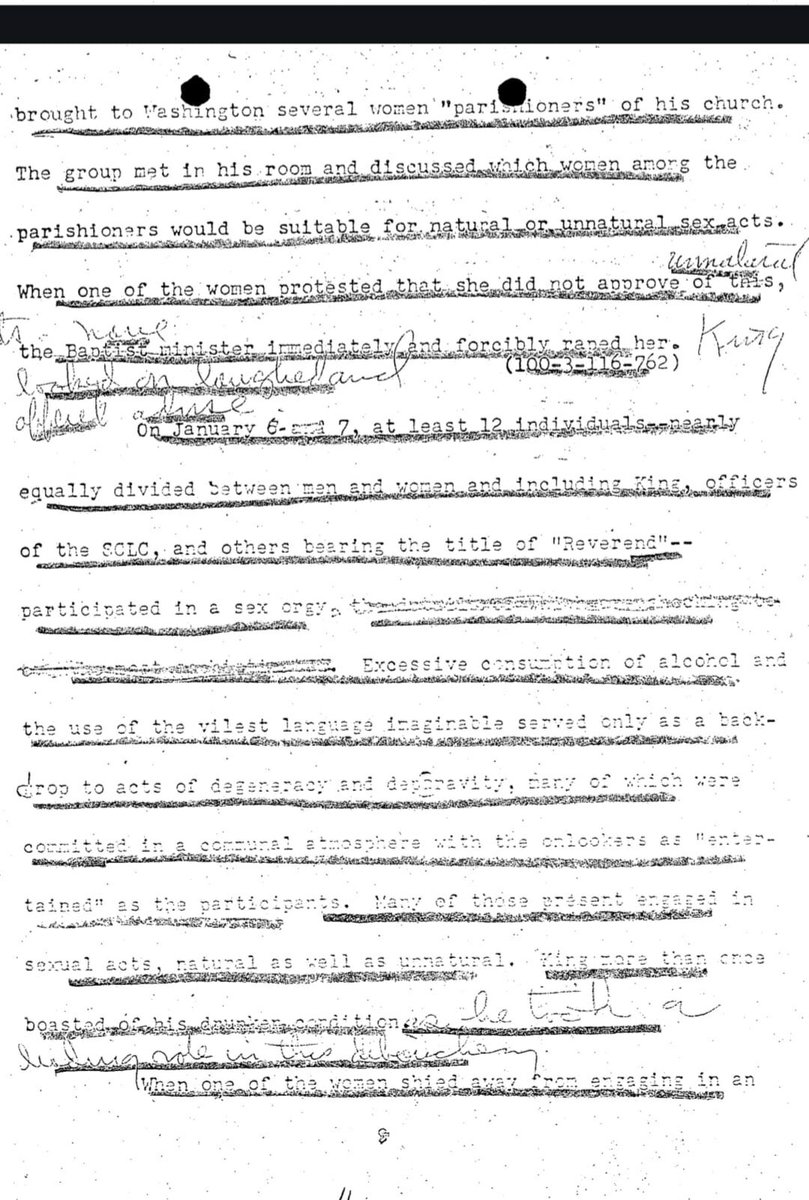 brought to Washington several women "parishioners" of his church.
The group met in his room and discussed which women among the
parishioners would be suitable for natural or unnatural sex acts.
unnatural
When one of the women protested that she did not approve of this,
the Baptist minister immediately and forcibly raped her.
King
looked on laughed and
(100-3-116-762)
offered advise
On January 6 and 7, at least 12 individuals--nearly
equally divided between men and women and including King, officers
of the SCLC, and others bearing the title of "Reverend"--
participated in a sex orgy.
Excessive consumption of alcohol and
the use of the vilest language imaginable served only as a back-
drop to acts of degeneracy and depravity, many of which were
committed in a communal atmosphere with the onlookers as "enter-
tained" as the participants. Many of those present engaged in
sexual acts, natural as well as unnatural. King more than once
boasted of his drunken condition as he took a
leading role in this debauchery
When one of the women shied away from engaging in an